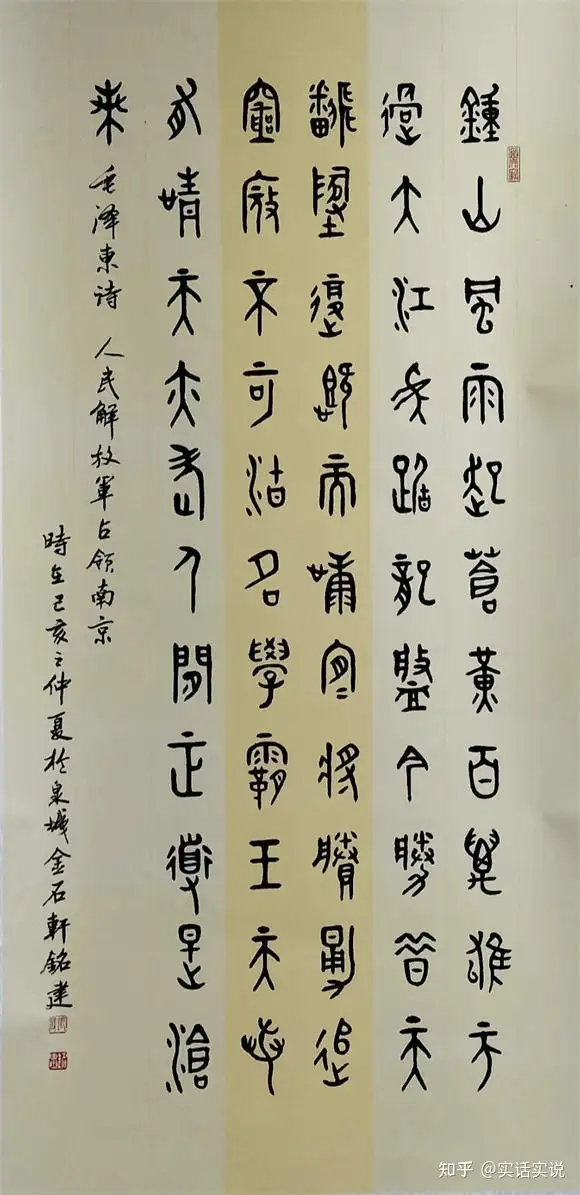 鍾山風雨起蒼黃百萬雄師
過大江虎踞龍盤今勝昔天
翻地覆慨而慷宜將剩勇追
窮寇不可沽名學霸王天若
有情天亦老人間正道是滄
桑 毛泽東诗 人民解放軍占领南京
時在己亥之仲夏於泉城金石軒銘建
知乎 @实话实说